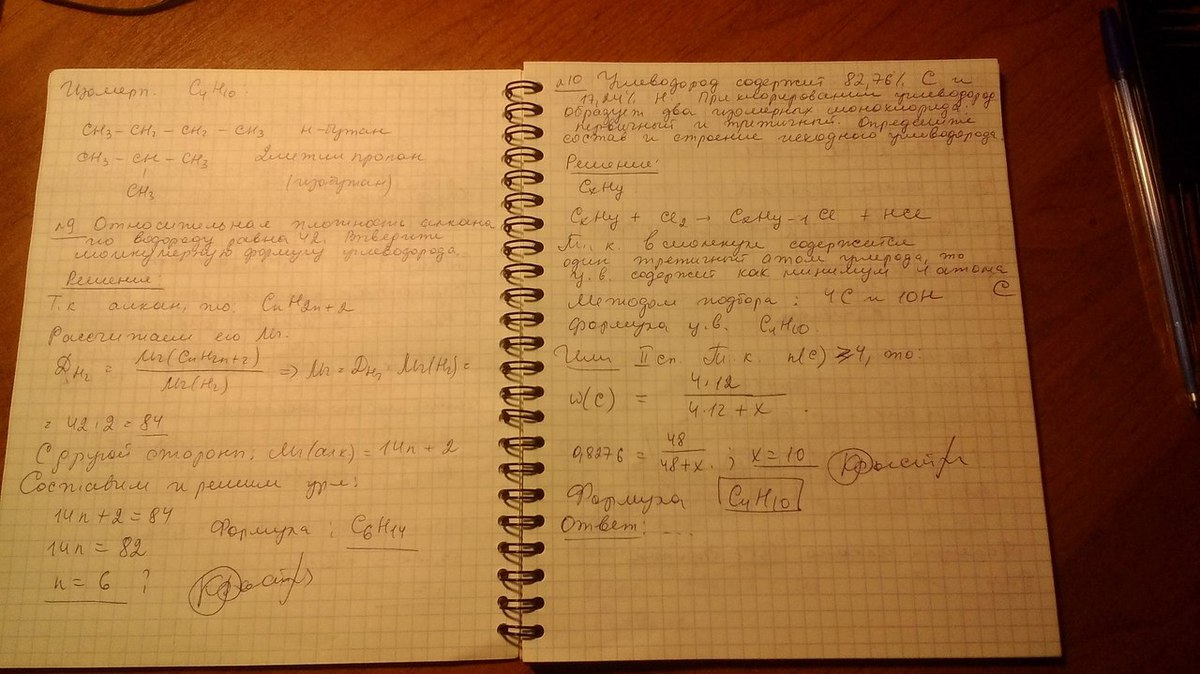 Изомеры. C4H10.
CH3 – CH2 – CH2 – CH3 н-бутан
CH3 – CH – CH3 2метил пропан
CH3 (изобутан)
№9 Относительная плотность алкана
по водороду равна 42. Выведите
молекулярную формулу углеводорода.
Решение:
Т.к алкан, то CnH2n+2
Рассчитаем его Mr.
DH2 = Mr(CnH2n+2) / Mr(H2) => Mr = DH2 · Mr(H2) =
= 42 · 2 = 84
С другой стороны; Mr(алк) = 14n + 2
Составим и решим ур-е:
14n + 2 = 84
14n = 82
n = 6 ?
Формула : C6H14
№10 Углеводород содержит 82,76% C и
17,24% H. При хлорировании углеводород
образует два изомерных монохлорида:
первичный и третичный. Определите
состав и строение исходного углеводорода.
Решение:
CxHy
CxHy + Cl2 → CxHy-1Cl + HCl
Т. к. в молекуле содержится
один третичный атом углерода, то
у.в. содержит как минимум 4 атома C
Методом подбора : 4C и 10H
Формула у.в. C4H10.
Или II сп. Т к n(C) ⩾ 4, то:
w(C) = 4·12 / 4·12 + x .
0,8276 = 48 / 48+x. ; x = 10
Формула C4H10
Ответ: ...